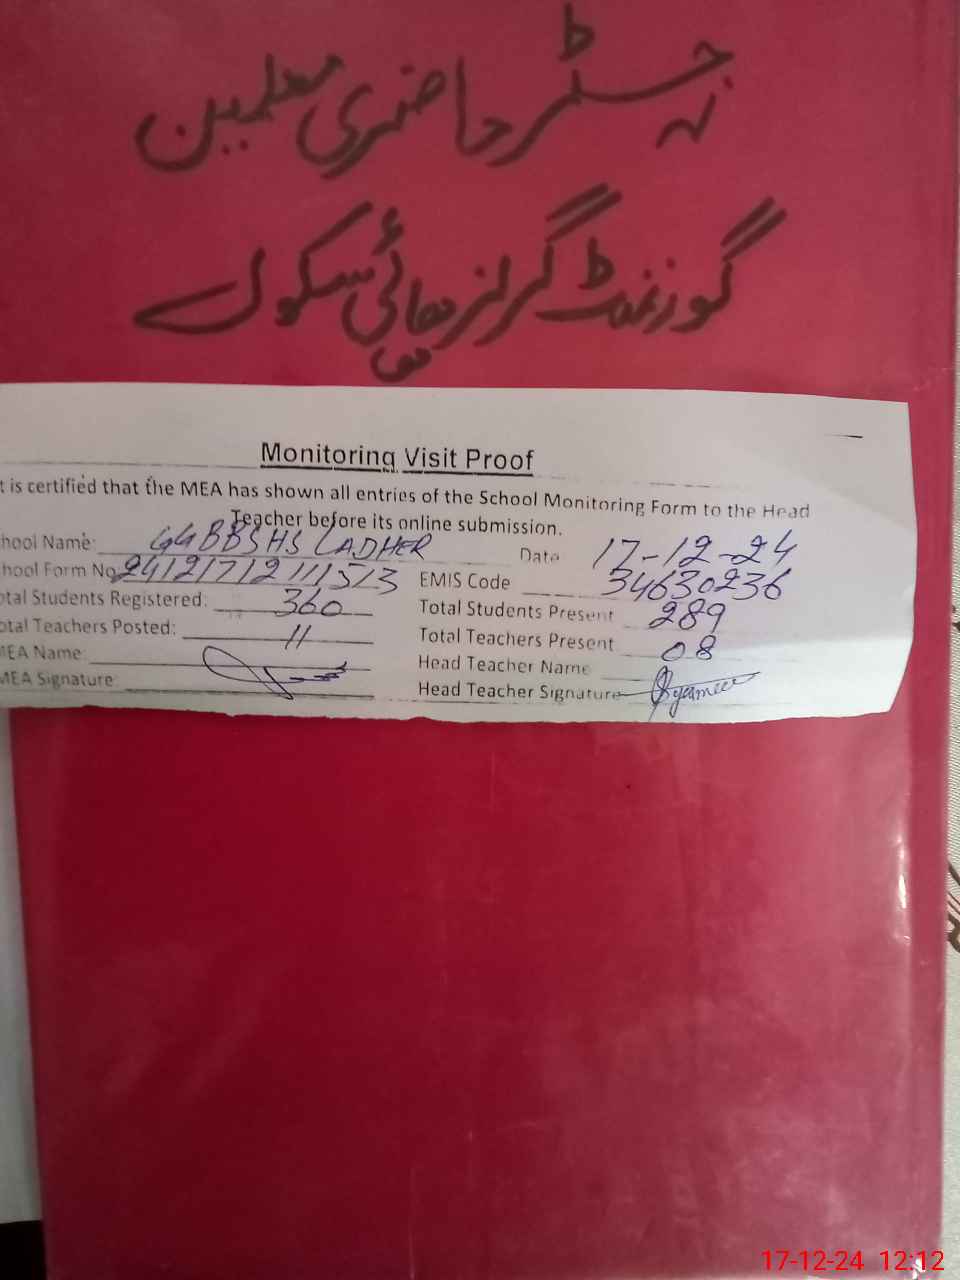 رجسٹر حاضری معلمین
گورنمنٹ گرلز ہائی سکول
Monitoring Visit Proof
t is certified that the MEA has shown all entries of the School Monitoring Form to the Head
Teacher before its online submission.
hool Name: GGBBSHS LADHER Date 17-12-24
hool Form No: EMIS Code 34630236
otal Students Registered: 360 Total Students Present 289
otal Teachers Posted: 11 Total Teachers Present 08
MEA Name: Head Teacher Name
MEA Signature: Head Teacher Signature
17-12-24 12:12